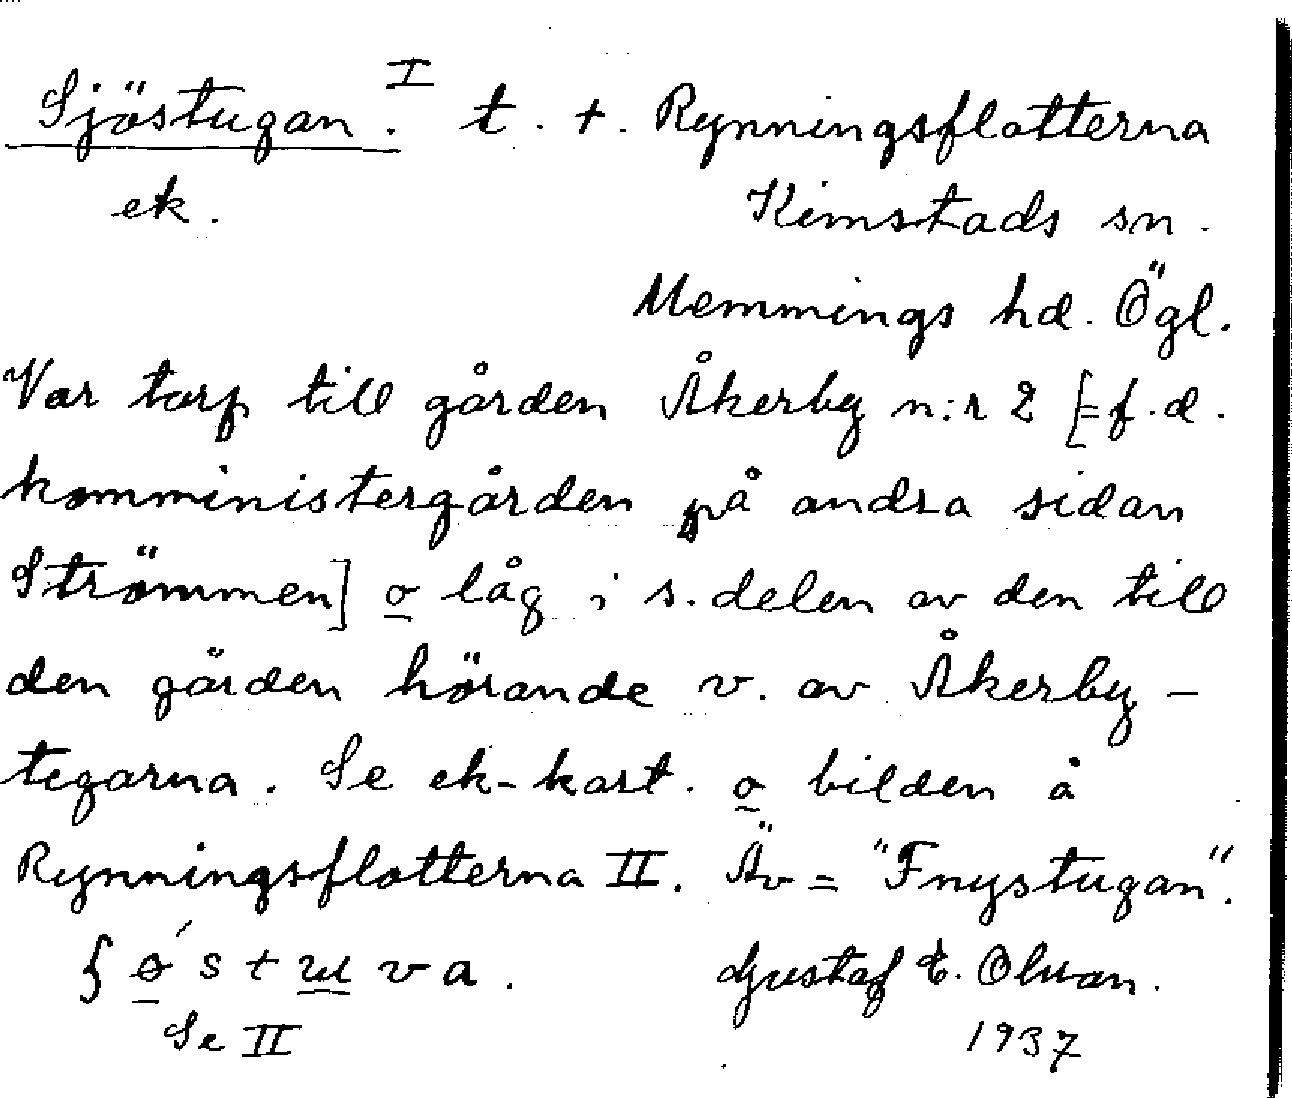 Sjöstugan. I t. +. Rynningsflotterna
ek. Kimstads sn.
Memmings hd. Ögl.
Var torp till gården Åkerby n:r 2 [= f.d.
komministergården på andra sidan
Strömmen] o låg i s. delen av den till
den gården hörande v. av Åkerby-
tegarna. Se ek-kart. o bilden å
Rynningsflotterna II. Äv = "Fnystugan".
va.
Se II
Gustaf E. Olsson.
1937